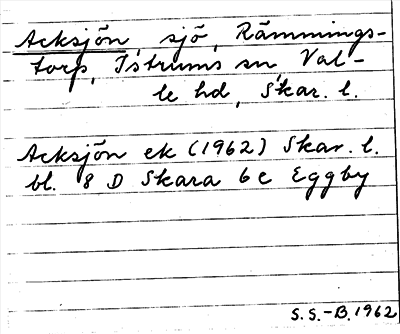 Acksjön, sjö, Rämmings-
torp, Istrums sn, Val-
le hd, Skar. l.
Acksjön ek (1962) Skar. l.
bl. 8 D Skara 6 c Eggby
S.S.-B. 1962